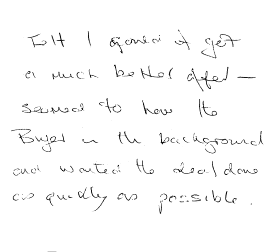 Felt I go
a much better offer —
seemed to have the
Buyer in the background
and wanted the deal done
as quickly as possible.